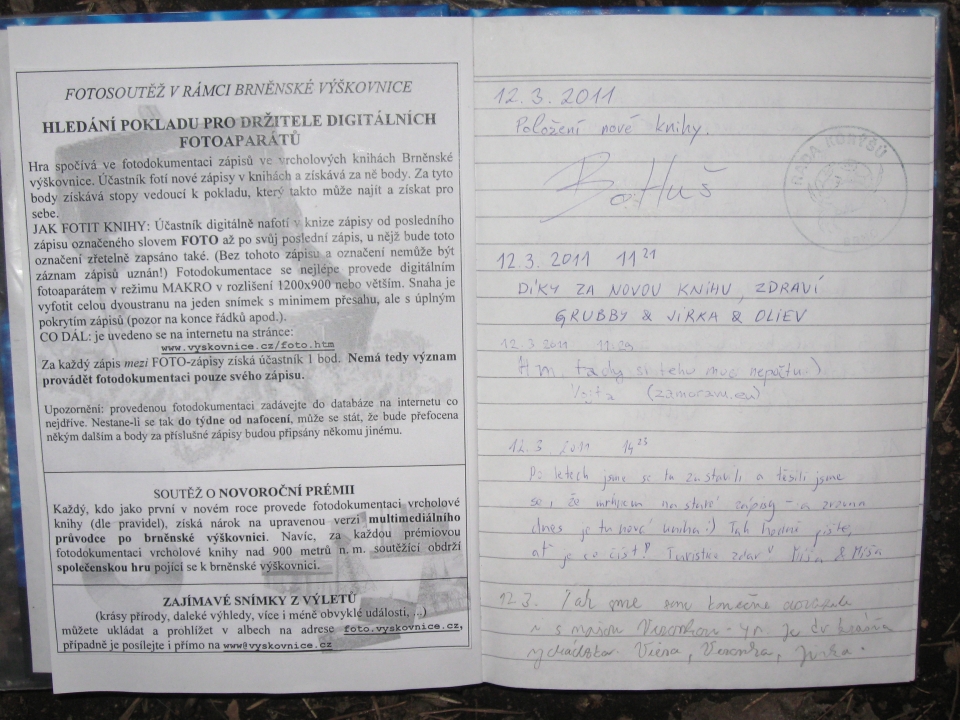 FOTOSOUTĚŽ V RÁMCI BRNĚNSKÉ VÝŠKOVNICE
HLEDÁNÍ POKLADU PRO DRŽITELE DIGITÁLNÍCH
FOTOAPARÁTŮ
Hra spočívá ve fotodokumentaci zápisů ve vrcholových knihách Brněnské
výškovnice. Účastník fotí nové zápisy v knihách a získává za ně body. Za tyto
body získává stopy vedoucí k pokladu, který takto může najít a získat pro
sebe.
JAK FOTIT KNIHY: Účastník digitálně nafotí v knize zápisy od posledního
zápisu označeného slovem FOTO až po svůj poslední zápis, u nějž bude toto
označení zřetelně zapsáno také. (Bez tohoto zápisu a označení nemůže být
záznam zápisů uznán!) Fotodokumentace se nejlépe provede digitálním
fotoaparátem v režimu MAKRO v rozlišení 1200x900 nebo větším. Snaha je
vyfotit celou dvoustranu na jeden snímek s minimem přesahu, ale s úplným
pokrytím zápisů (pozor na konce řádků apod.).
CO DÁL: je uvedeno se na internetu na stránce:
www.vyskovnice.cz/foto.htm
Za každý zápis mezi FOTO-zápisy získá účastník 1 bod. Nemá tedy význam
provádět fotodokumentaci pouze svého zápisu.
Upozornění: provedenou fotodokumentaci zadávejte do databáze na internetu co
nejdříve. Nestane-li se tak do týdne od nafocení, může se stát, že bude přefocena
někým dalším a body za příslušné zápisy budou připsány někomu jinému.
SOUTĚŽ O NOVOROČNÍ PRÉMII
Každý, kdo jako první v novém roce provede fotodokumentaci vrcholové
knihy (dle pravidel), získá nárok na upravenou verzi multimediálního
průvodce po brněnské výškovnici. Navíc, za každou prémiovou
fotodokumentaci vrcholové knihy nad 900 metrů n. m. soutěžící obdrží
společenskou hru pojící se k brněnské výškovnici.
ZAJÍMAVÉ SNÍMKY Z VÝLETŮ
(krásy přírody, daleké výhledy, více i méně obvyklé události, ...)
můžete ukládat a prohlížet v albech na adrese foto.vyskovnice.cz,
případně je posílejte i přímo na www@vyskovnice.cz
12.3.2011
Položení nové knihy.
BoHuš
RADA KORYŠŮ
12.3.2011 11 21
DÍKY ZA NOVOU KNIHU, ZDRAVÍ
GRUBBY & JIRKA & OLIEV
12.3 2011
Hm, tady si toho moc nepočtu :)
12.3 2011 14 23
Po letech jsme se tu zastavili a těšili jsme
se, že mrkneme na staré zápisy - a zrovna
dnes je tu nová kniha :) Tak hodně pište,
ať je co číst! Turistice zdar! Míša & Míša
12.3. Tak jsme sem konečně
Věra, Veronika, Jirka.